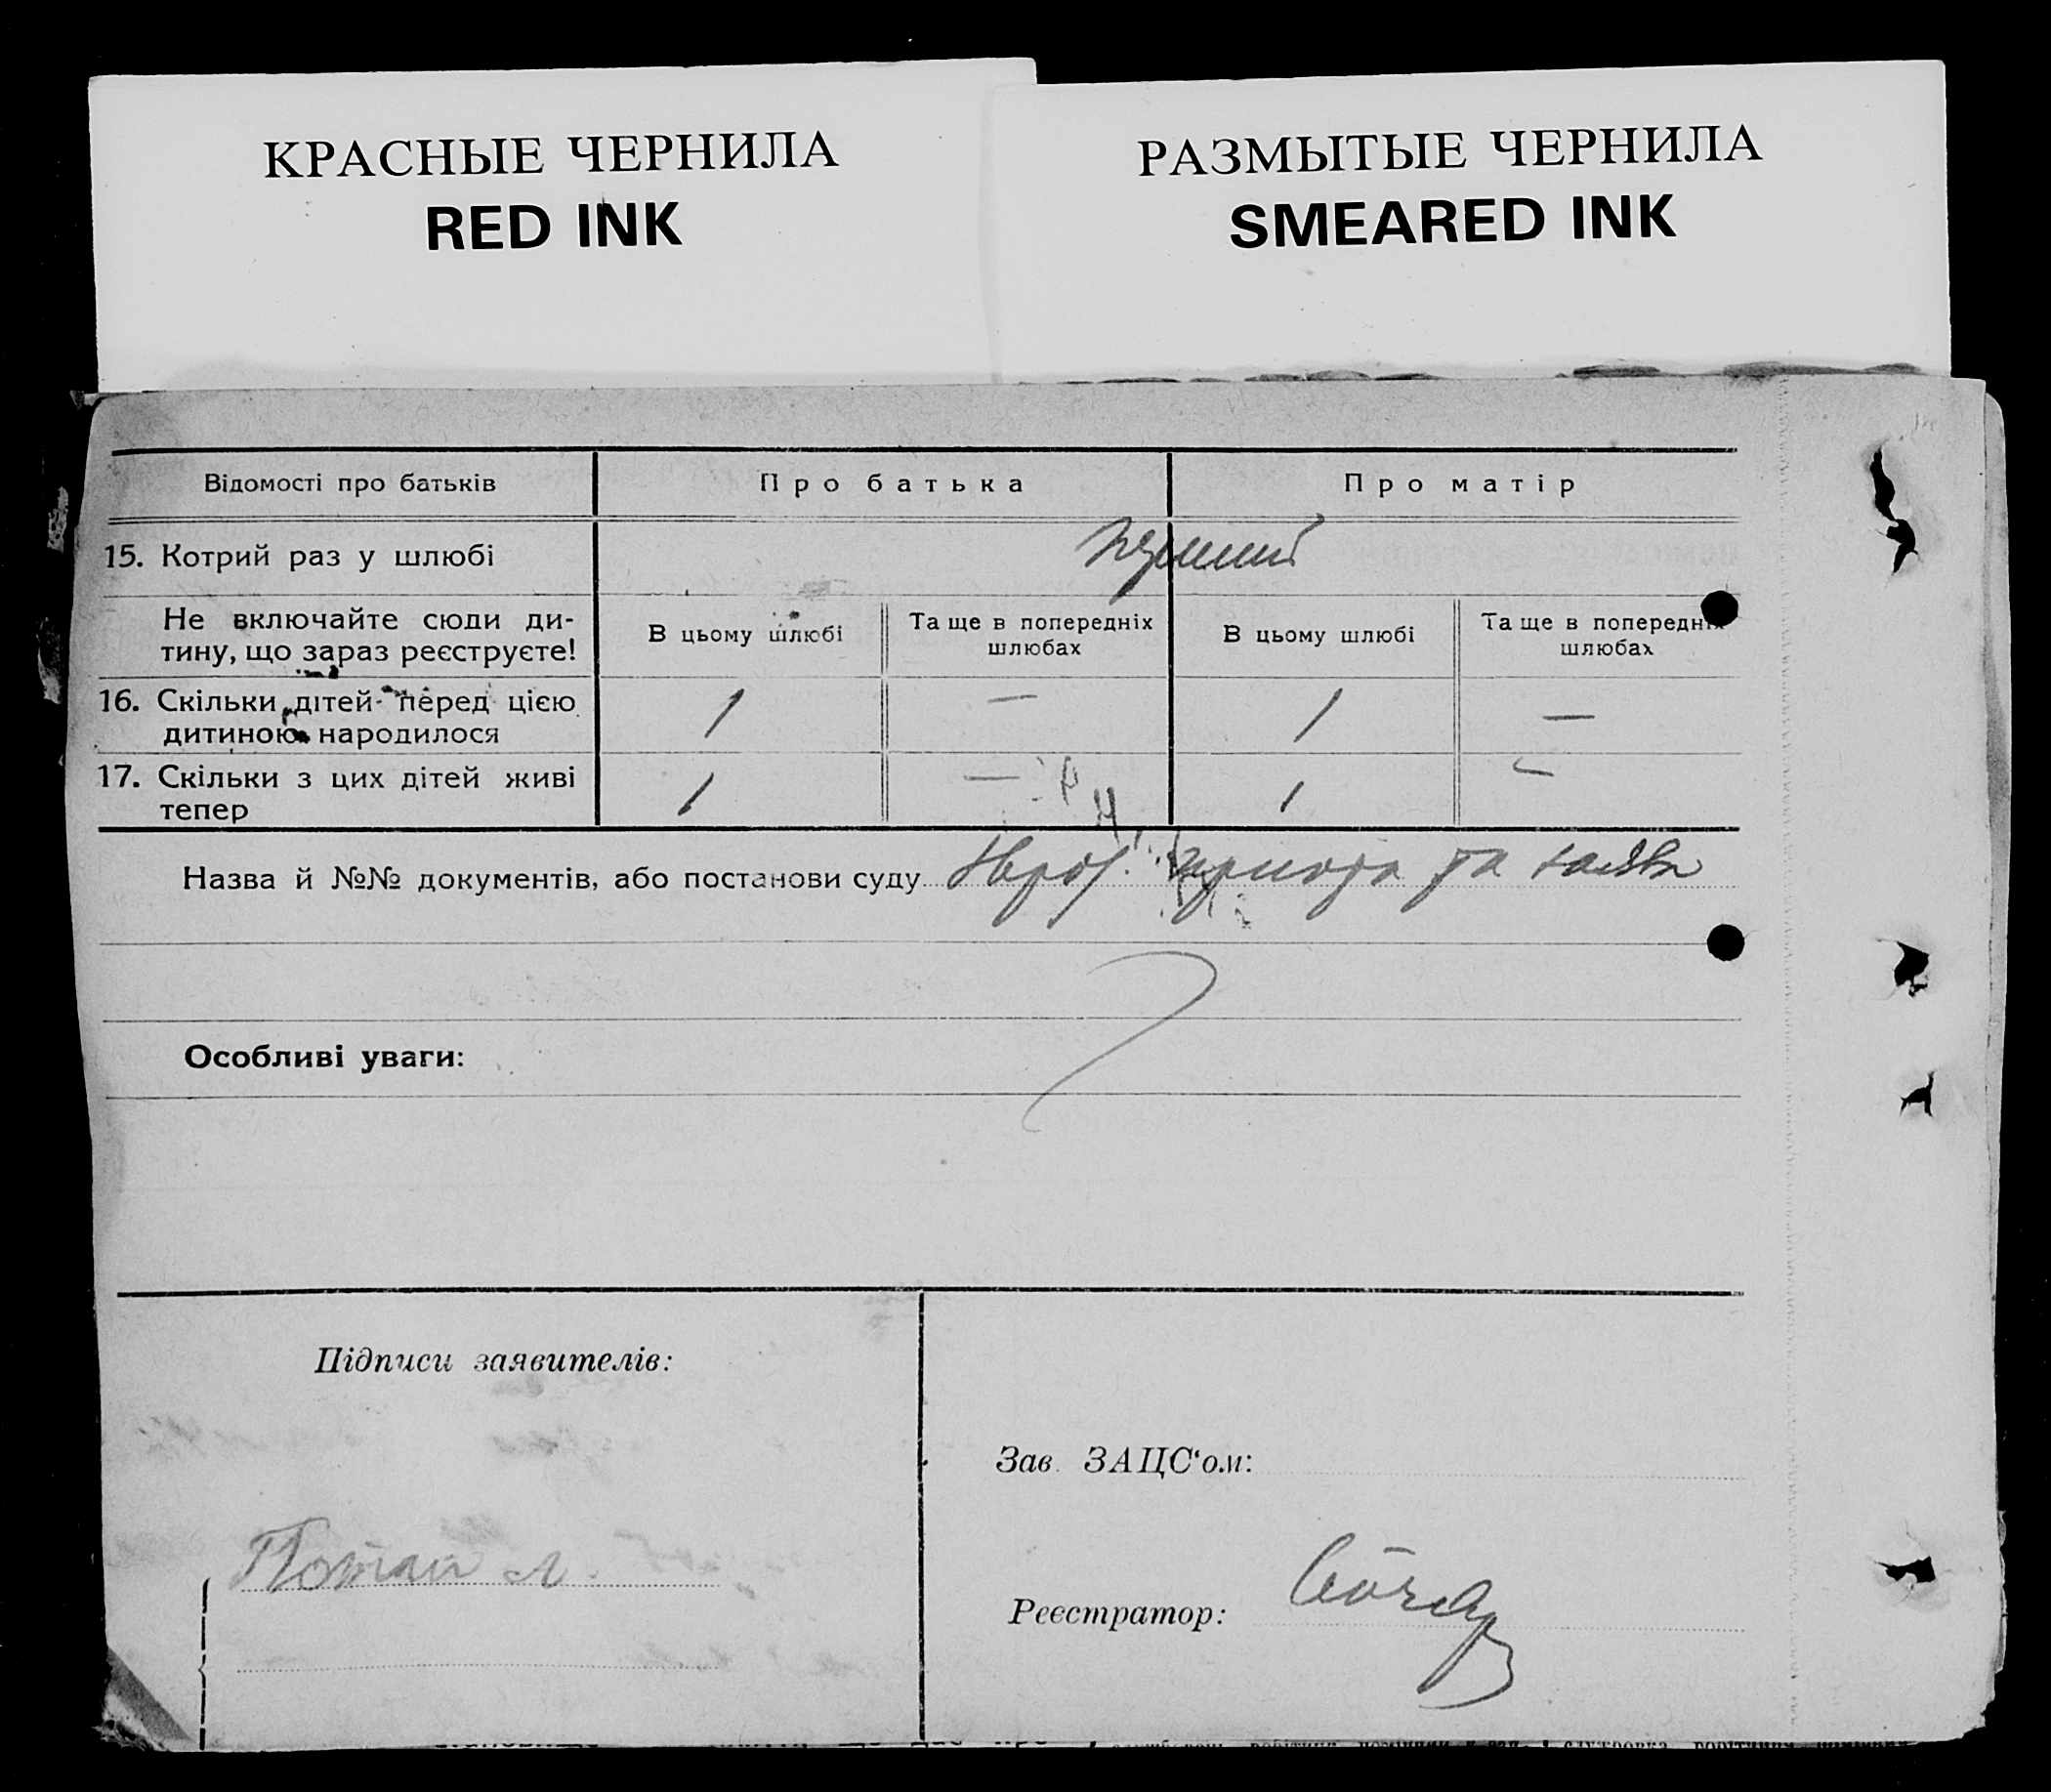 КРАСНЫЕ ЧЕРНИЛА
RED INK
РАЗМЫТЫЕ ЧЕРНИЛА
SMEARED INK
Відомості про батьків
Про батька
Про матір
15. Котрий раз у шлюбі
перший
Не включайте сюди ди-
тину, що зараз реєструєте!
В цьому шлюбі
Та ще в попередніх
шлюбах
В цьому шлюбі
Та ще в попередніх
шлюбах
16. Скільки дітей перед цією
дитиною народилося
1
—
1
—
17. Скільки з цих дітей живі
тепер
1
—
1
—
Назва й №№ документів, або постанови суду та заява
Особливі уваги:
Підписи заявителів:
Зав. ЗАЦС'ом:
Реєстратор: